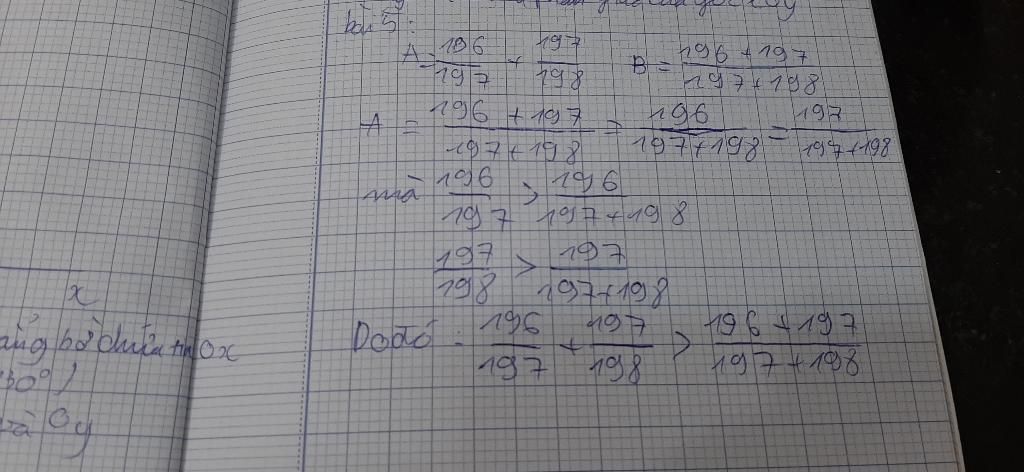 bài 5:
A = 196/197 + 197/198 B = 196 + 197/197 + 198
A = 196 + 197/197 + 198 = 196/197 + 198 = 197/197 + 198
mà 196/197 > 196/197 + 198
197/198 > 197/197 + 198
Do đó: 196/197 + 197/198 > 196 + 197/197 + 198
x
Ox
30°)
và Oy